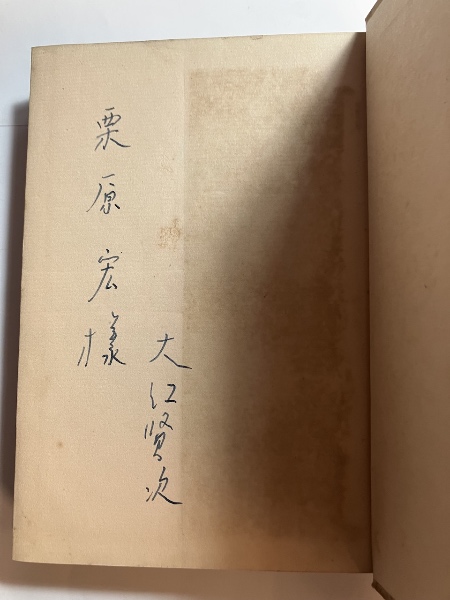 栗原宏樣
大江賢次